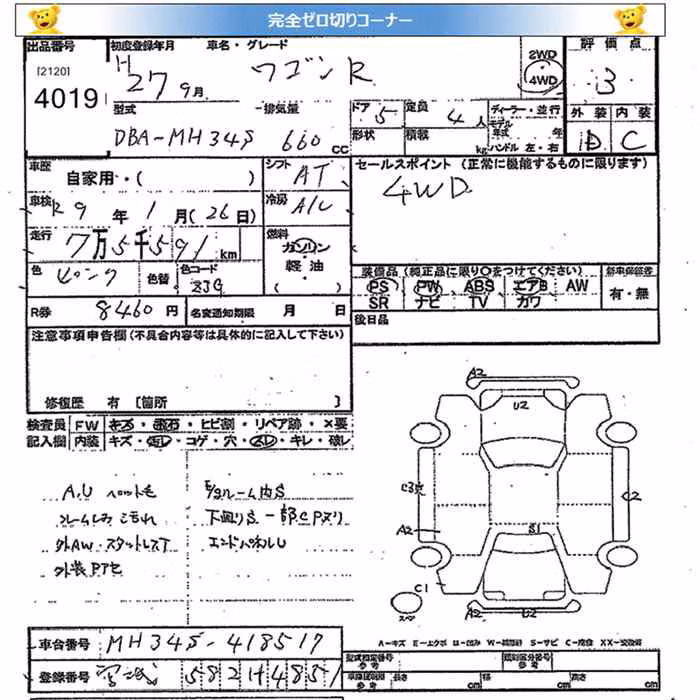 完全ゼロ切りコーナー
出品番号 初度登録年月 車名・グレード 評価点
[2120]
4019
H 27 9月 ワゴンR 2WD 4WD 3
型式 排気量 ドア 5 定員 4人 ディーラー・並行 外装 内装
DBA-MH34S 660 cc 形状 積載 kg モデル年式 年 ハンドル 左・右 D C
車歴 自家用・( ) シフト AT セールスポイント (正常に機能するものに限ります)
車検 R9年1月(26日) 冷房 A/C 4WD
走行 7万5千591km 燃料 ガソリン・軽油・( )
色 ピンク 色替 色コード ZJG 装備品 (純正品に限り○をつけてください) 新車保証書
PS PW ABS エアB AW 有・無
SR ナビ TV カワ
R券 8460円 名変通知期限 月 日 後日品
注意事項申告欄(不具合内容等は具体的に記入して下さい)
修復歴 有 [箇所 ]
検査員 FW キズ・飛石・ヒビ割・リペア跡・×要
記入欄 内装 キズ・ヨゴレ・コゲ・穴・スレ・キレ・破レ
外AW・スタットレスT 下廻りS-部CPヌリ
エンドパネルU
A2
U2
C2
A2 S1
C1
スペア A2 U2
A-キズ E-エクボ U-凹み W-補修跡 S-サビ C-腐食 XX-交換済
車台番号 MH34S-418517
型式指定番号 参考 類別区分番号 参考
登録番号 宮城 582 H 4851
車検証記載 参考 長さ cm 幅 cm 高さ cm